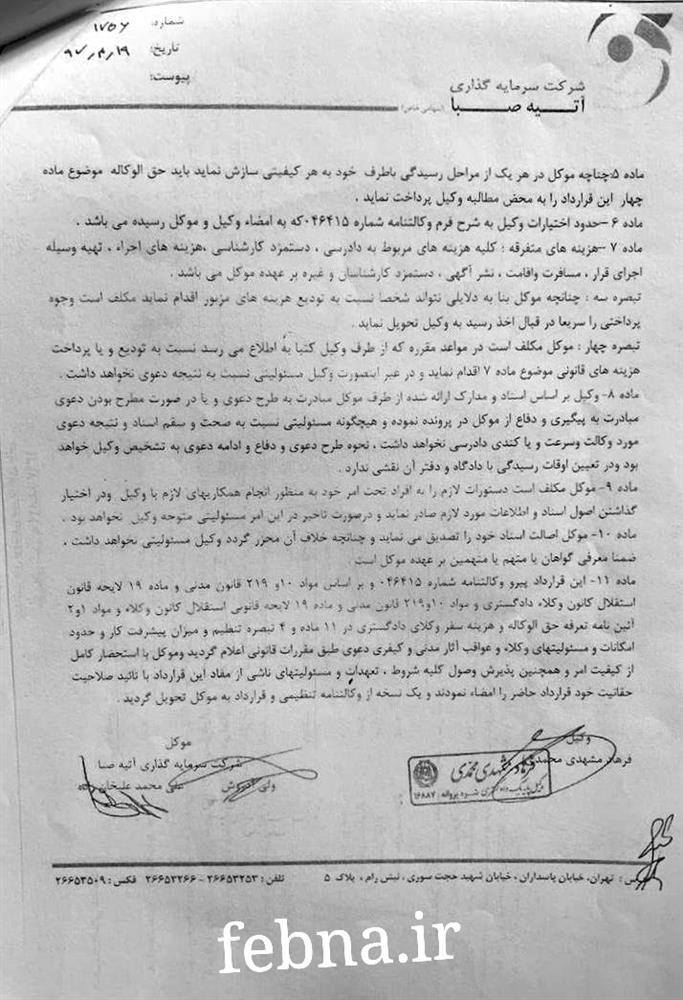 شماره: ۱۷۵۶
تاریخ: ۹۷٫۴٫۱۹
پیوست:
شرکت سرمایه گذاری
آتیه صبا (سهامی خاص)
ماده ۵:چناچه موکل در هر یک از مراحل رسیدگی باطرف خود به هر کیفیتی سازش نماید باید حق الوکاله موضوع ماده
چهار این قرارداد را به محض مطالبه وکیل پرداخت نماید .
ماده ۶ –حدود اختیارات وکیل به شرح فرم وکالتنامه شماره ۰۴۶۴۱۵که به امضاء وکیل و موکل رسیده می باشد .
ماده ۷ –هزینه های متفرقه : کلیه هزینه های مربوط به دادرسی ، دستمزد کارشناسی ،هزینه های اجراء ، تهیه وسیله
اجرای قرار ، مسافرت واقامت ، نشر آگهی ، دستمزد کارشناسان و غیره بر عهده موکل می باشد .
تبصره سه : چنانچه موکل بنا به دلایلی نتواند شخصا نسبت به تودیع هزینه های مزبور اقدام نماید مکلف است وجوه
پرداختی را سریعا در قبال اخذ رسید به وکیل تحویل نماید .
تبصره چهار : موکل مکلف است در مواعد مقرره که از طرف وکیل کتبا به اطلاع می رسد نسبت به تودیع و یا پرداخت
هزینه های قانونی موضوع ماده ۷ اقدام نماید و در غیر اینصورت وکیل مسئولیتی نسبت به نتیجه دعوی نخواهد داشت .
ماده ۸- وکیل بر اساس اسناد و مدارک ارائه شده از طرف موکل مبادرت به طرح دعوی و یا در صورت مطرح بودن دعوی
مبادرت به پیگیری و دفاع از موکل در پرونده نموده و هیچگونه مسئولیتی نسبت به صحت و سقم اسناد و نتیجه دعوی
مورد وکالت وسرعت و یا کندی دادرسی نخواهد داشت ، نحوه طرح دعوی و دفاع و ادامه دعوی به تشخیص وکیل خواهد
بود ودر تعیین اوقات رسیدگی با دادگاه و دفتر آن نقشی ندارد .
ماده ۹- موکل مکلف است دستورات لازم را به افراد تحت امر خود به منظور انجام همکاریهای لازم با وکیل ودر اختیار
گذاشتن اصول اسناد و اطلاعات مورد لازم صادر نماید و درصورت تاخیر در این امر مسئولیتی متوجه وکیل نخواهد بود .
ماده ۱۰- موکل اصالت اسناد خود را تصدیق می نماید و چنانچه خلاف آن محرز گردد وکیل مسئولیتی نخواهد داشت .
ضمنا معرفی گواهان یا متهم یا متهمین بر عهده موکل است .
ماده ۱۱- این قرارداد پیرو وکالتنامه شماره ۰۴۶۴۱۵ و بر اساس مواد ۱۰و ۲۱۹ قانون مدنی و ماده ۱۹ لایحه قانون
استقلال کانون وکلاء دادگستری و مواد ۱۰و۲۱۹ قانون مدنی و ماده ۱۹ لایحه قانونی استقلال کانون وکلاء و مواد ۱و۲
آئین نامه تعرفه حق الوکاله و هزینه سفر وکلای دادگستری در ۱۱ ماده و ۴ تبصره تنظیم و میزان پیشرفت کار و حدود
امکانات و مسئولیتهای وکلاء و عواقب آثار مدنی و کیفری دعوی طبق مقررات قانونی اعلام گردید وموکل با استحضار کامل
از کیفیت امر و همچنین پذیرش وصول کلیه شروط ، تعهدات و مسئولیتهای ناشی از مفاد این قرارداد با تائید صلاحیت
حقانیت خود قرارداد حاضر را امضاء نمودند و یک نسخه از وکالتنامه تنظیمی و قرارداد به موکل تحویل گردید .
وکیل
فرهاد مشهدی محمدی
فرهاد مشهدی محمدی
وکیل پایه یک دادگستری شماره پروانه : ۱۶۸۸۷
موکل
شرکت سرمایه گذاری آتیه صبا
ولی آذروش علی محمد علیخان زاده
تهران، خیابان پاسداران، خیابان شهید حجت سوری، نبش رام، پلاک ۵ تلفن: ۲۶۶۵۳۲۵۳ - ۲۶۶۵۳۲۶۶ فکس: ۲۶۶۵۳۵۰۹
febna.ir